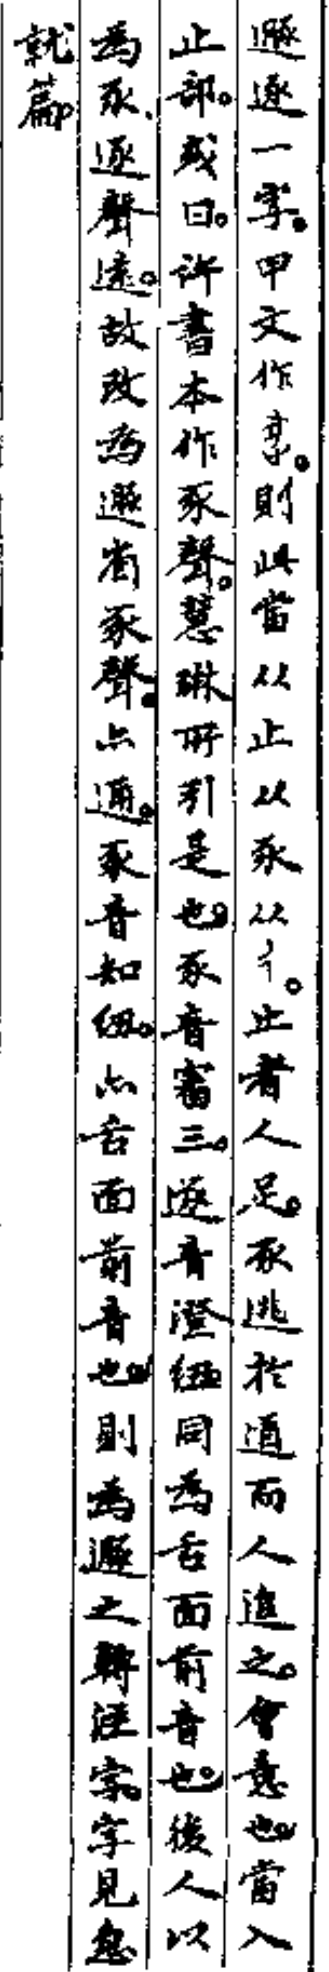 遯逐一字。甲文作。則此當从止从豕从彳。止者人足。豕逃於道而人追之。會意也。當入
止部。或曰。許書本作豕聲。慧琳所引是也。豕音審三。逐音澄紐同為舌面前音也。後人以
為豕、逐聲遠。故改為遯省豕聲。亦通。豕音知紐。亦舌面前音也。則為遯之轉注字。字見急
就篇